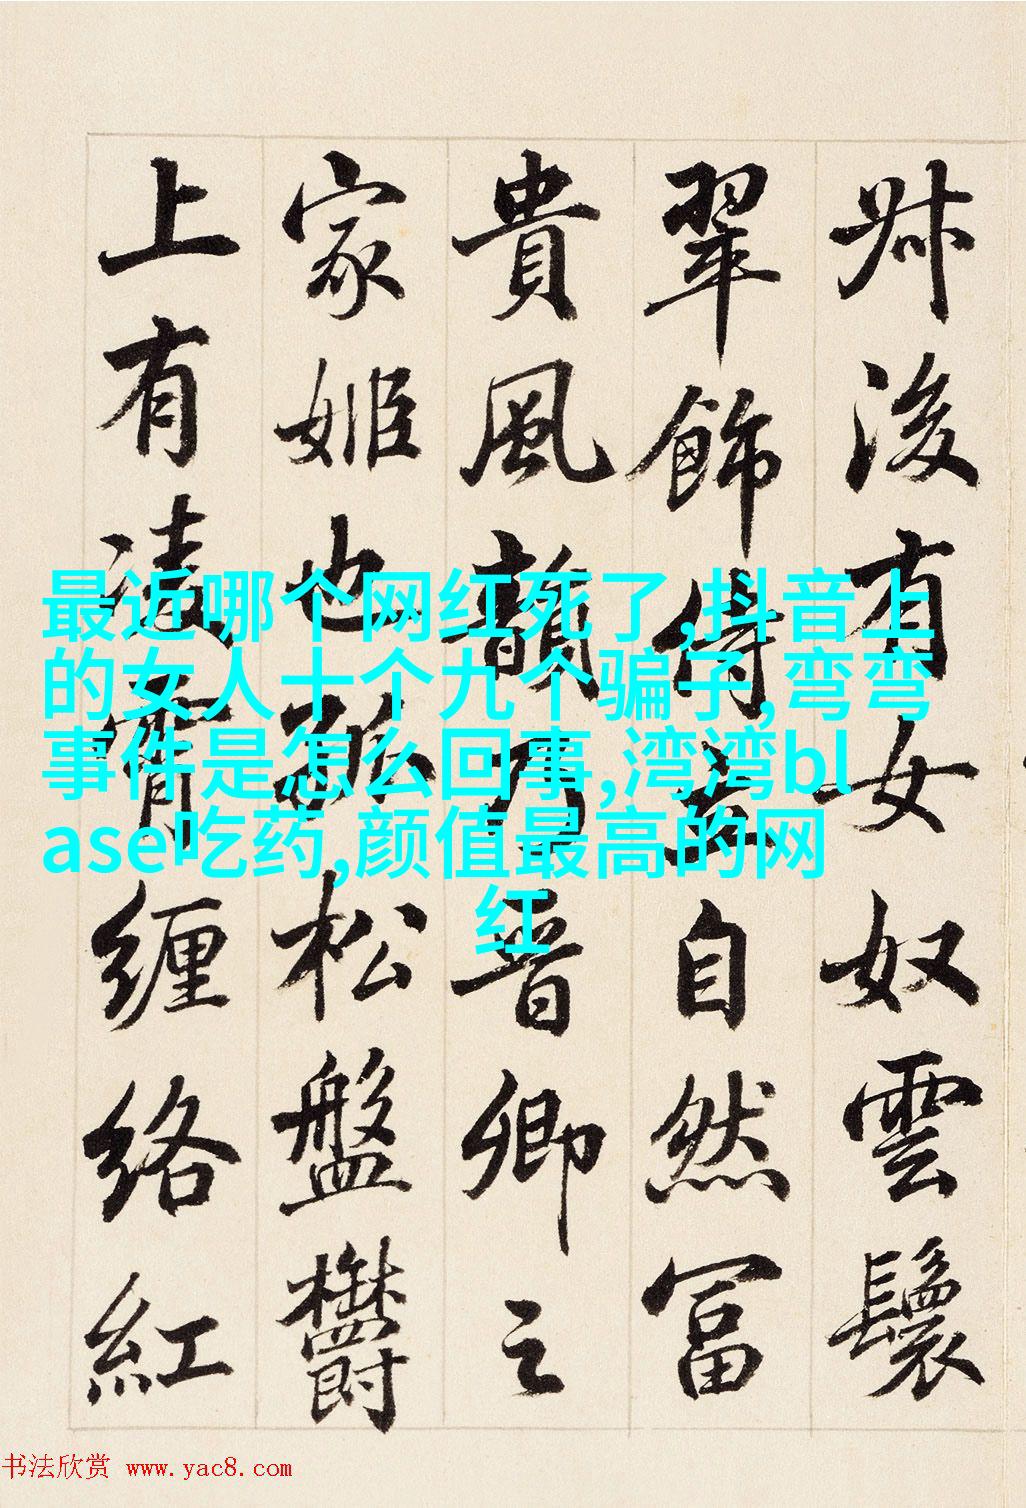 後有女奴雲鬟
翠飾侍立自然富
貴風韻乃晉卿之
家姬也孤松盤鬱
上有凌霄纏絡紅
最近哪个网红死了,抖音上
的女人十个九个骗子,弯弯
事件是怎么回事,湾湾bl
ase吃药,颜值最高的网
红
书法欣赏 www.yac8.com